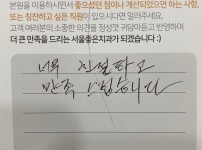 본원을 이용하시면서 좋으셨던 점이나 개선되었으면 하는 사항,
또는 칭찬하고 싶은 직원이 있으시다면 알려주세요.
고객 여러분의 소중한 의견을 정성껏 귀담아듣고 반영하여
더 큰 만족을 드리는 서울좋은치과가 되겠습니다 :)
너무 친절하고
만족!합니다